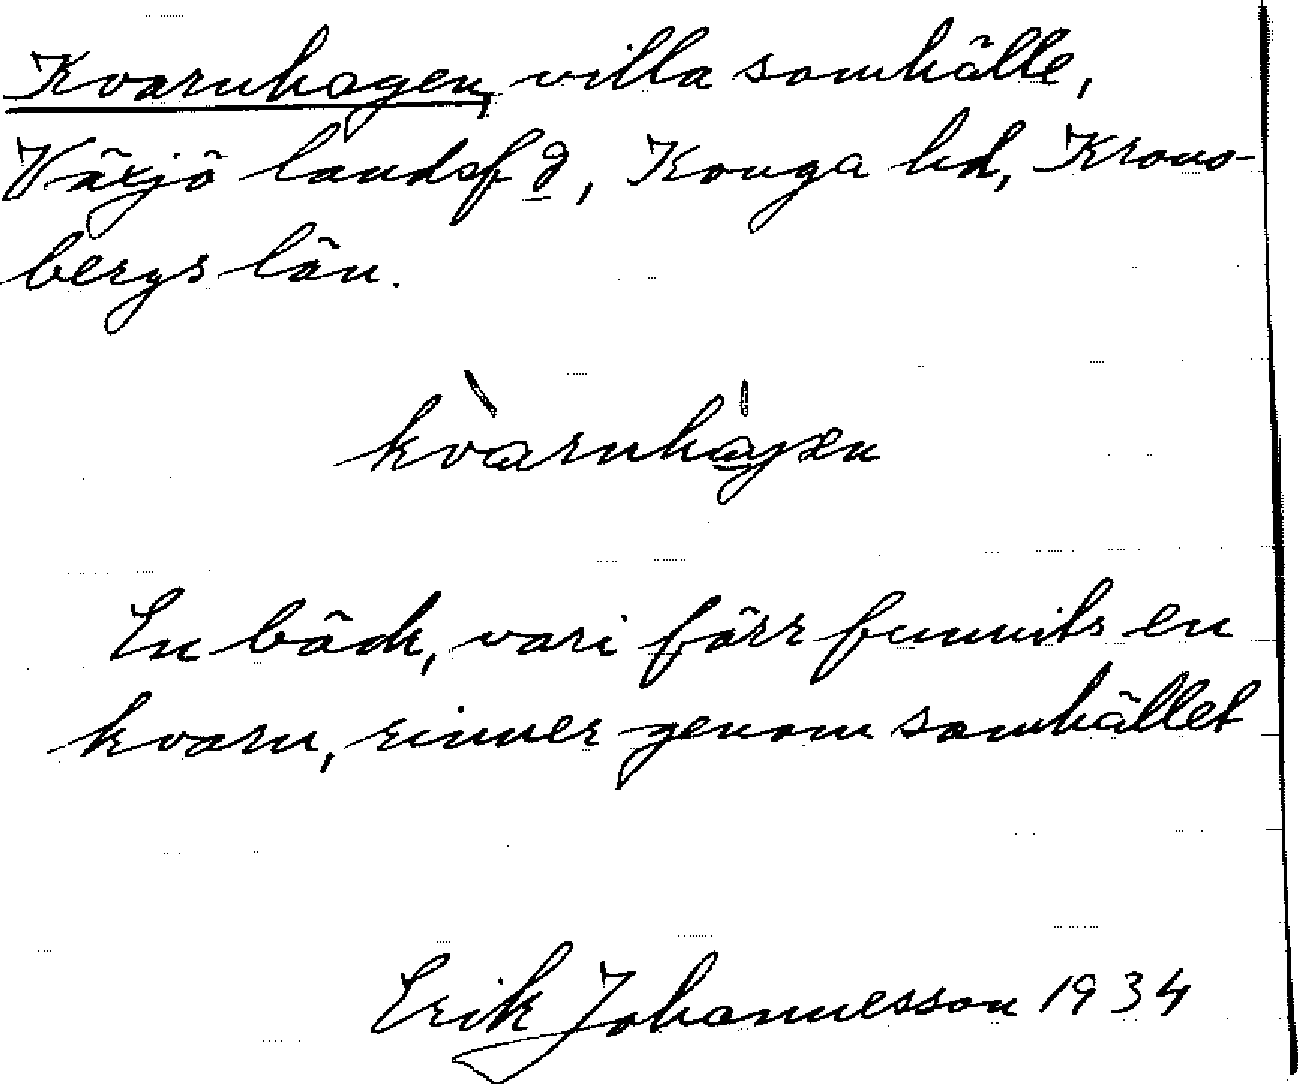 Kvarnhagen, villa samhälle,
Växjö landsf d, Konga hd, Krono-
bergs län.
kvàrnhágen
En bäck, vari förr funnits en
kvarn, rinner genom samhället
Erik Johannesson 1934